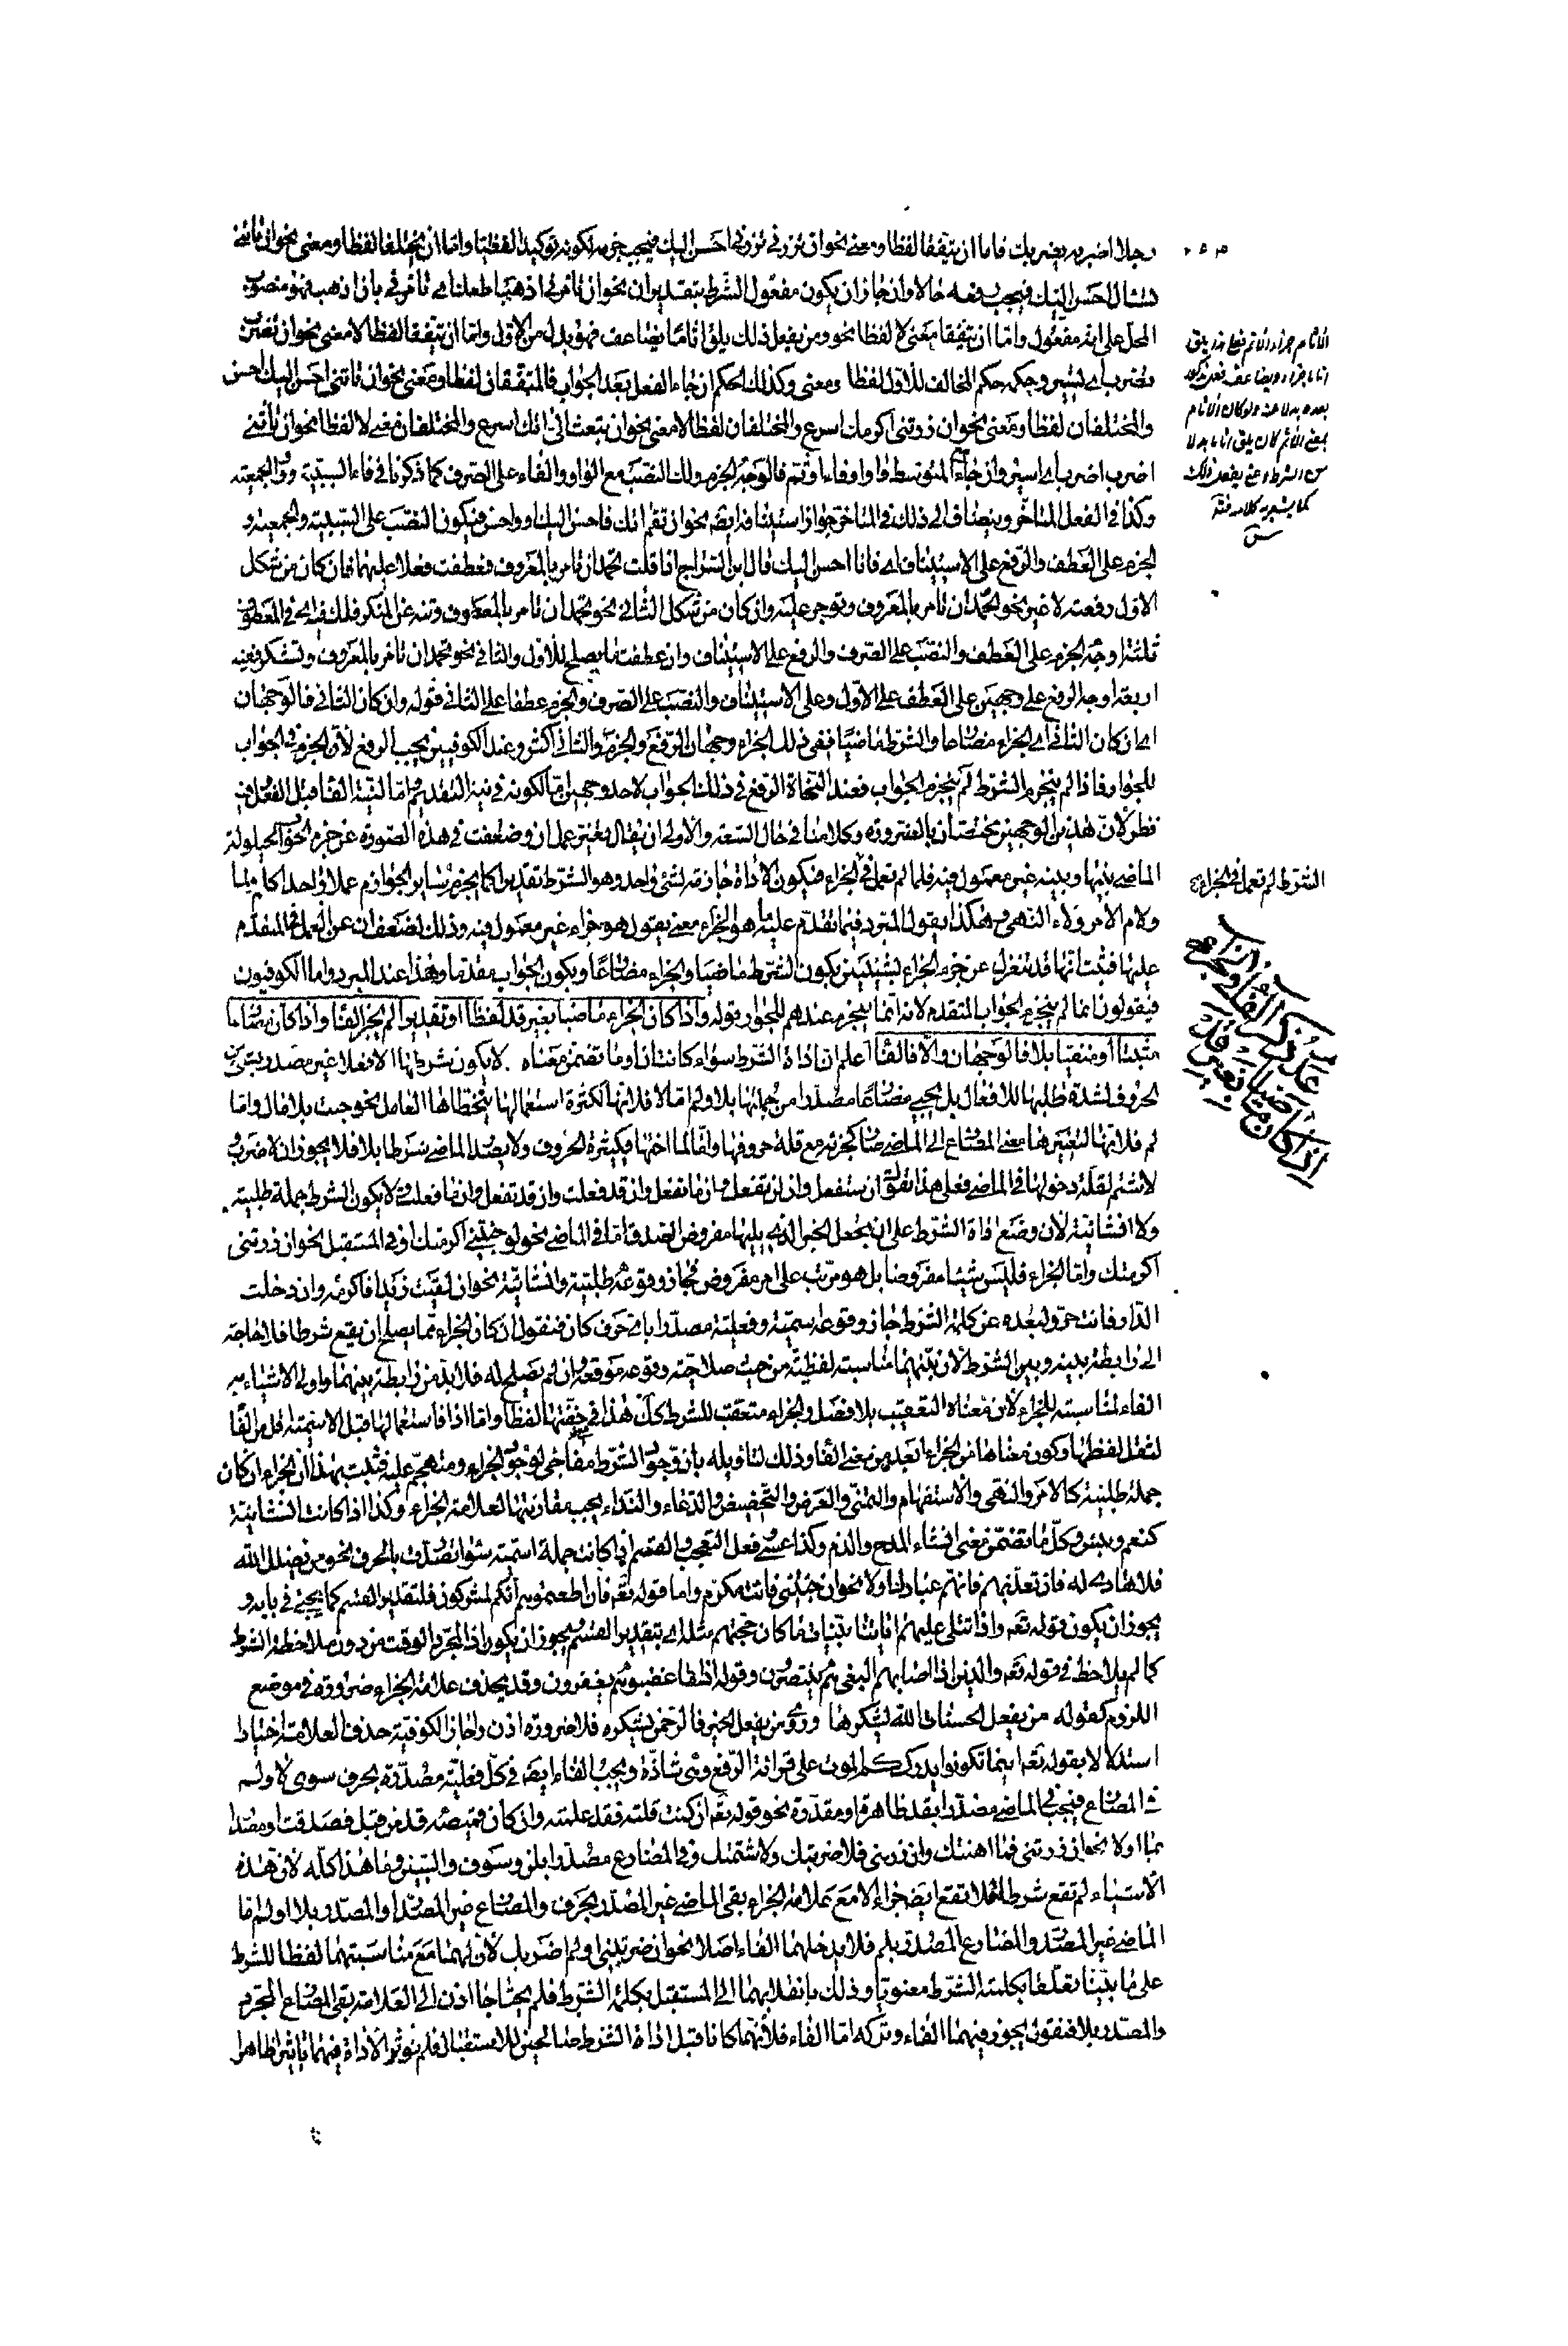 رجلا اضربه يضربك فاما ان يتفقا لفظا ومعنى نحو ان تزرنى تزرنى احسن اليك فيجب جزمه لكونه توكيدا لفظيا واما ان يختلفا لفظا ومعنى نحو ان تأتنى
تسئال احسن اليك فيجب رفعه حالا وان جاز ان يكون مفعول الشرط بتقدير ان نحو ان تأمرنى اذهب اطعك اى تأمرنى بان اذهب فهو منصوب
المحل على انه مفعول واما ان يتفقا معنى لا لفظا نحو ومن يفعل ذلك يلق اثاما يضاعف فهو بدل من الاول واما ان يتفقا لفظا لا معنى نحو ان تضرب
تضرب اى تسير وحكمه حكم المخالف للاول لفظا ومعنى وكذلك الحكم ان جاء الفعل بعد الجواب فالمتفقان لفظا ومعنى نحو ان تأتنى احسن اليك احسن
والمختلفان لفظا ومعنى نحو ان زرتنى اكرمك اسرع والمختلفان لفظا لا معنى نحو ان تبعث الى اتك اسرع والمختلفان معنى لا لفظا نحو ان تأتنى
اضرب اضرب اى اسير وان جاء المتوسط واوا وفاء او ثم فالوجه الجزم ولك النصب مع الواو والفاء على الصرف كما ذكرنا فى فاء السببية وواو الجمعية
وكذا فى الفعل المتأخر وينضاف الى ذلك فى المتأخر جواز استئنافه ايضا نحو ان تقم اتك فاحسن اليك او واحسن فيكون النصب على السببية والجمعية و
الجزم على العطف والرفع على الاستيناف اى فانا احسن اليك قال ابن السراج اذا قلت تحمد ان تامر بالمعروف فعطفت فعلا عليهما فان كان من شكل
الاول رفعته لا غير نحو تحمد ان تامر بالمعروف وتوجر عليه وان كان من شكل الثانى نحو تحمد ان تامر بالمعروف وتنه عن المنكر فلك فى المعطوف
ثلثة اوجه الجزم على العطف والنصب على الصرف والرفع على الاستيناف وان عطفت ما يصلح للاول والثانى نحو تحمد ان تامر بالمعروف وتشكر ففيه
اربعة اوجه الرفع على وجهين على العطف على الاول وعلى الاستيناف والنصب على الصرف والجزم عطفا على الثانى قوله وان كان الثانى فالوجهان
اى ان كان الثانى اى الجزاء مضارعا والشرط ماضيا ففى ذلك الجزاء وجهان الرفع والجزم والثانى اكثر وعند الكوفيين يجب الرفع لان الجزم فى الجواب
للجوار فاذا لم ينجزم الشرط لم ينجزم الجواب فعند النحاة الرفع فى ذلك الجواب لاحد وجهين اما لكونه فى نية التقديم واما لنية الفاء قبل الفعل وفيه
نظر لان هذين الوجهين يختصان بالضرورة وكلامنا فى حال السعة والاولى ان يقال تغير عمل ان وضعفت فى هذه الصورة عن جزم الجواب لحيلولة
الماضى بينها وبينه غير معمول فيه فلما لم تعمل فى الجزاء فيكون الاداة جازمة لشئ واحد وهو الشرط تقديرا كما يجزم سائر الجوازم عملا واحدا كلم ولما
ولام الامر ولاء النهى وهكذا يقول المبرد فيما تقدم عليه ما هو الجزاء معنى يقول هو جزاء غير معمول فيه وذلك لضعف ان عن العمل فى المتقدم
عليها فثبت انها قد تنعزل عن جزم الجزاء لشيئين بكون الشرط ماضيا والجزاء مضارعا وبكون الجواب مقدما وهذا عند المبرد واما الكوفيون
فيقولون انما لم ينجزم الجواب المتقدم لانه انما ينجزم عندهم للجوار قوله واذا كان الجزاء ماضيا بغير قد لفظا او تقديرا لم يجز الفاء واذا كان مضارعا
مثبتا او منفيا بلا فالوجهان والا فالفاء اعلم ان اداة الشرط سواء كانت ان او ما تضمن معناه لا يكون شرطها الا فعلا غير مصدر بشئ من
الحروف لشدة طلبها للافعال بل يجيئ مضارعا مصدرا من جملتها بلا ولم اما لا فلانها لكثرة استعمالها يتخطاها العامل نحو جئت بلا مال واما
لم فلانها لتغييرها معنى المضارع الى الماضى صار كجزئه مع قلة حروفها واما لما اختها فكثيرة الحروف ولا يصدر الماضى شرطا بلا فلا يجوز ان لا ضرب و
لا شتم لقلة دخولها فى الماضى فعلى هذا تقول ان ستفعل وان لن تفعل وان ما تفعل وان قد فعلت وان قد تفعل وان ما فعلت ولا يكون الشرط جملة طلبية
ولا انشائية لان وضع اداة الشرط على ان يجعل الخبر الذى يليها مفروض الصدق اما فى الماضى نحو لو جئتنى اكرمتك او فى المستقبل نحو ان زرتنى
اكرمتك واما الجزاء فليس شيئا مفروضا بل هو مرتب على امر مفروض فجاز وقوعه طلبية وانشائية نحو ان لقيت زيدا فاكرمه وان دخلت
الدار فانت حر ولبعده عن كلمة الشرط جاز وقوعه اسمية وفعلية مصدرا باى حرف كان فنقول ان كان الجزاء مما يصلح ان يقع شرطا فلا حاجة
الى رابطة بينه وبين الشرط لان بينهما مناسبة لفظية من حيث صلاحية وقوعه موقعه وان لم يصلح له فلا بد من رابطة بينهما واولى الاشياء به
الفاء لمناسبته للجزاء لان معناه التعقيب بلا فصل والجزاء متعقب للشرط كل هذا فى خفتها لفظا واما اذا فاستعمالها قبل الاسمية اقل من الفاء
لثقل لفظها وكون معناها من الجزاء ابعد من معنى الفاء وذلك لتاويله بان وجود الشرط مفاجى لوجود الجزاء ومتهجم عليه فثبت بهذا ان الجزاء ان كان
جملة طلبية كالامر والنهى والاستفهام والتمنى والعرض والتحضيض والدعاء والنداء يجب مقارنتها لعلامة الجزاء وكذا اذا كانت انشائية
كنعم وبئس وكل ما تضمن معنى انشاء المدح والذم وكذا عسى وفعل التعجب والقسم واذا كانت جملة اسمية سواء تصدرت بالحرف نحو من يضلل الله
فلا هادى له فان تعذبهم فانهم عبادك اولا نحو ان جئتنى فانت مكرم واما قوله تعه فان اطعتموهم انكم لمشركون فلتقدير القسم كما يجئ فى بابه و
يجوز ان يكون قوله تعه واذا تتلى عليهم اياتنا بينات ما كان حجتهم مثله اى بتقدير القسم ويجوز ان يكون اذا لمجرد الوقت من دون ملاحظة الشرط
كما لم يلاحظ فى قوله تعه والذين اذا اصابهم البغى هم ينتصرون وقوله اذا ما غضبوا هم يغفرون وقد يحذف علامة الجزاء ضرورة فى موضع
اللزوم كقوله من يفعل الحسنات الله يشكرها وروى من يفعل الخير فالرحمن يشكره فلا ضرورة اذن واجاز الكوفية حذف العلامة اختيارا
استدلالا بقوله تعه اينما تكونوا يدرككم الموت على قراءة الرفع وهى شاذة ويجب الفاء ايضا فى كل فعلية مصدرة بحرف سوى لا ولم
فى المضارع فيجب فى الماضى مصدرا بقد ظاهرة او مقدرة نحو قوله تعه ان كنت قلته فقد علمته وان كان قميصه قد من قبل فصدقت او مصدرا
بما او لا نحو ان زرتنى فما اهنتك وان زرتنى فلا ضربتك ولا شتمتك وفى المضارع مصدرا بلن وسوف والسين وما هذا كله لان هذه
الاشياء لم تقع شرطا فلا تقع ايضا جزاء الا مع علامة الجزاء بقى الماضى غير المصدر بحرف والمضارع غير المصدر او المصدر بلا او لم اما
الماضى غير المصدر والمضارع المصدر بلم فلا يدخلهما الفاء اصلا نحو ان ضربتنى او لم اضربك لان لهما مع مناسبتهما لفظا للشرط
على ما بينا تعلقا بكلمة الشرط معنويا وذلك بانقلابهما الى المستقبل بكلمة الشرط فلم يحتاجا اذن الى العلامة بقى المضارع المجرد
والمصدر بلا فنقول يجوز فيهما الفاء وتركه اما الفاء فلانهما كانا قبل اداة الشرط صالحين للاستقبال فلم تؤثر الاداة فيهما تاثيرا ظاهرا
الاثام جزاء الاثم
بعده بدلا عنه ولو كان الاثام
بمعنى الاثم كان يلق اثاما بدلا
من الشرط وهو يفعل ذلك
كما يشعر به كلامه
الشرط لم تعمل فى الجزاء